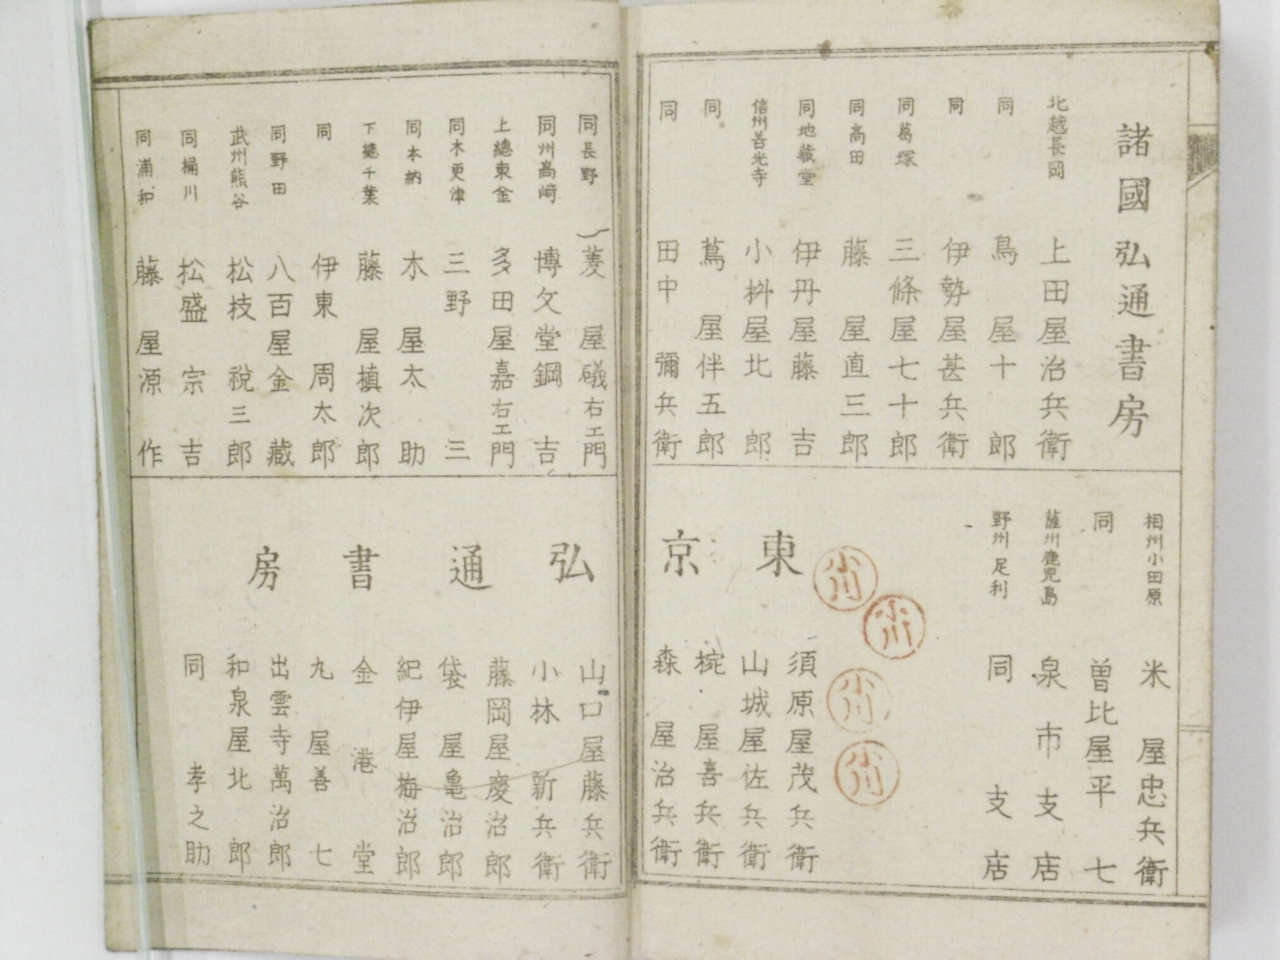 諸國弘通書房
北越長岡 上田屋治兵衛
同 鳥屋十郎
同 伊勢屋甚兵衛
同葛塚 三條屋七十郎
同高田 藤屋直三郎
同地藏堂 伊丹屋藤吉
信州善光寺 小桝屋北郎
同 蔦屋伴五郎
同 田中彌兵衛
相州小田原 米屋忠兵衛
同 曽比屋平七
薩州鹿児島 泉市支店
野州足利 同支店
小川
小川
小川
小川
東京
須原屋茂兵衛
山城屋佐兵衛
椀屋喜兵衛
森屋治兵衛
同長野 菱屋礒右エ門
同州高﨑 博文堂鋼吉
上總東金 多田屋嘉右エ門
同木更津 三野三
同本納 木屋太助
下總千葉 藤屋槙次郎
同 伊東周太郎
同野田 八百屋金藏
武州熊谷 松枝稅三郎
同桶川 松盛宗吉
同浦和 藤屋源作
弘通書房
山口屋藤兵衛
小林新兵衛
藤岡屋慶治郎
袋屋亀治郎
紀伊屋梅治郎
金港堂
九屋善七
出雲寺萬治郎
和泉屋北郎
同孝之助